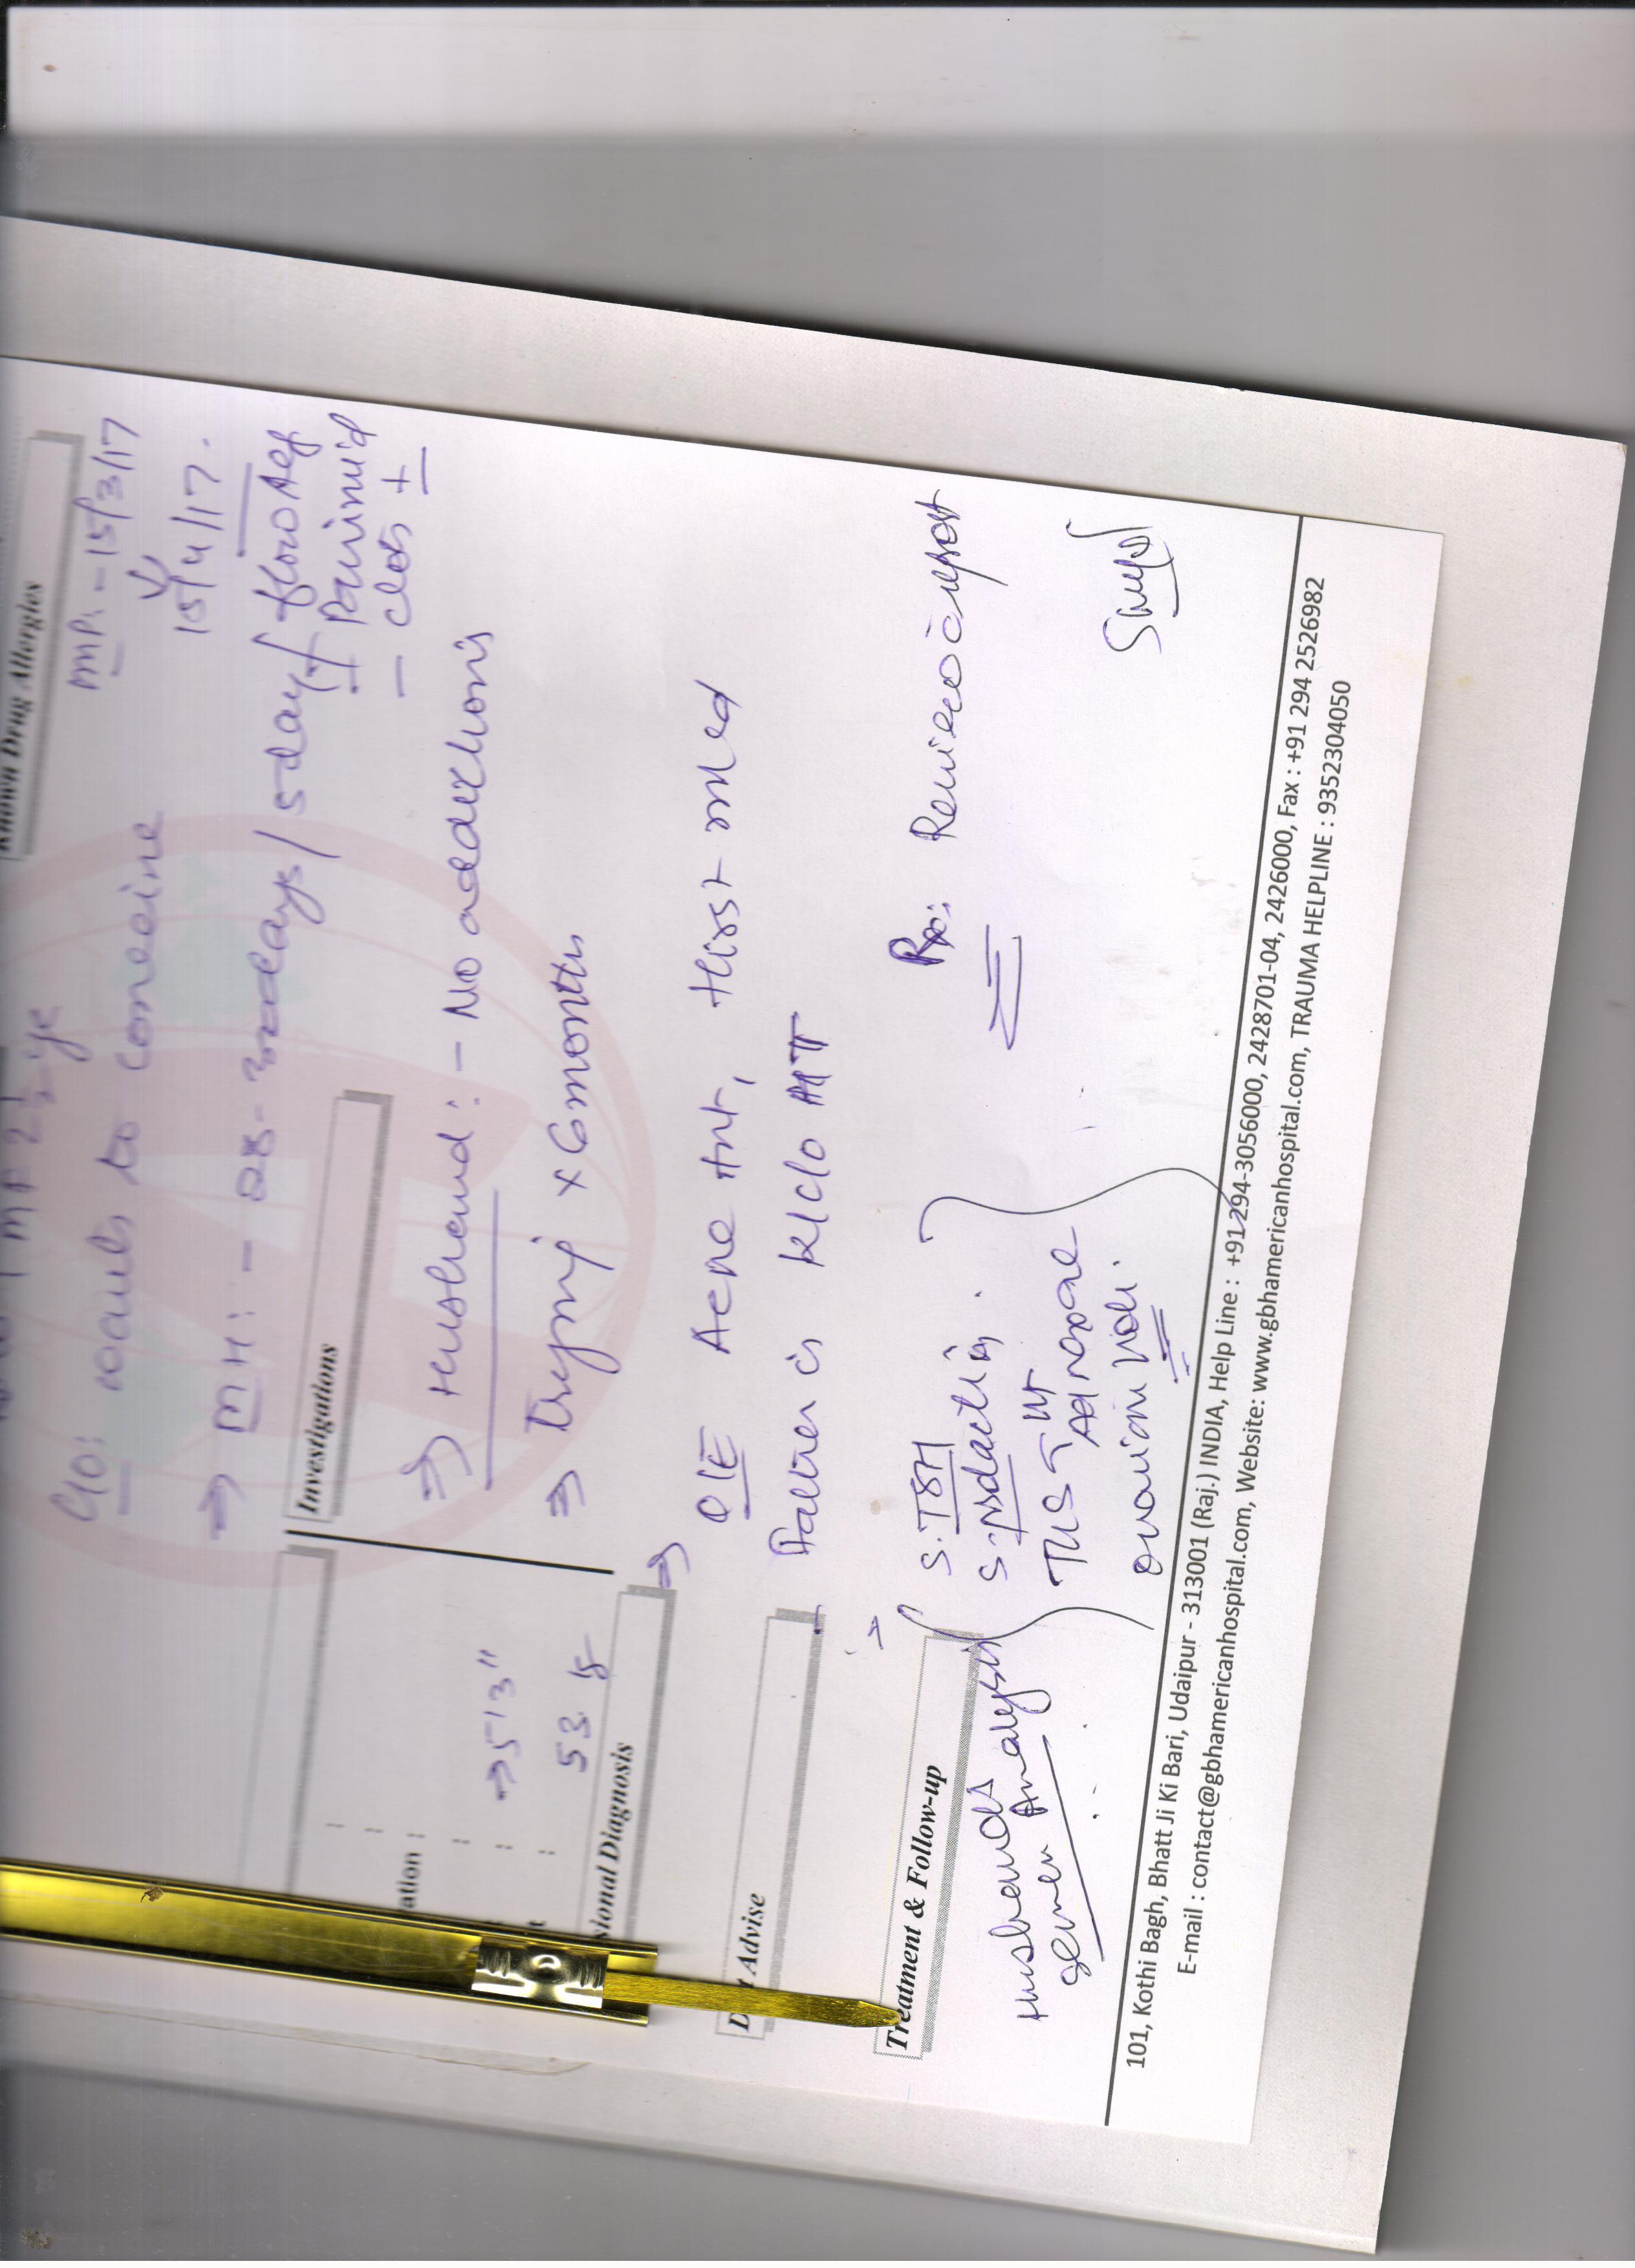 Known Drug Allergies
LMP. - 15/3/17
15/4/17.
2½ yr
C/O: wants to conceive
⇒ MH: - 28-30 days / 5 days / flow Reg
+ Painimid
- Clots +
Investigations
⇒ Husband: - No addictions
⇒ Trying x 6 months
ation :
→ 5'3"
53.8
sional Diagnosis
⇒ O/E Acne +nt, Hirst mild
Father is K/C/O HT
Advise
Treatment & Follow-up
Husband's
Semen Analysis
S. TSH
S. prolactin.
TVS
ovarian vol.
Rx: Review c report
101, Kothi Bagh, Bhatt Ji Ki Bari, Udaipur - 313001 (Raj.) INDIA, Help Line : +91 294-3056000, 2428701-04, 2426000, Fax : +91 294 2526982
E-mail : contact@gbhamericanhospital.com, Website: www.gbhamericanhospital.com, TRAUMA HELPLINE : 9352304050